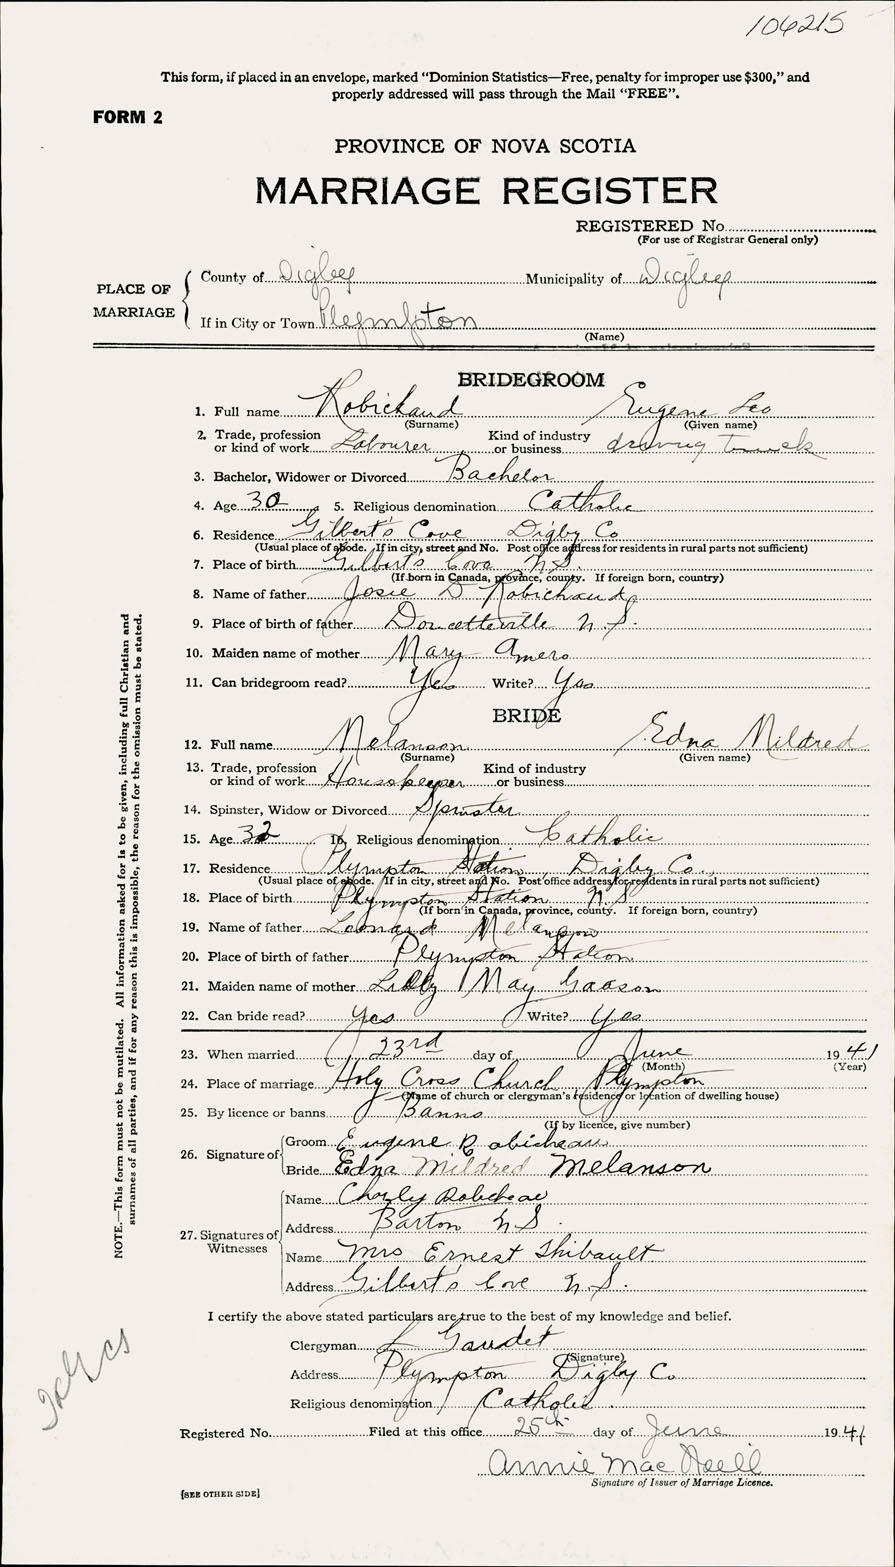 106215
This form, if placed in an envelope, marked "Dominion Statistics—Free, penalty for improper use $300," and
properly addressed will pass through the Mail "FREE".
FORM 2
PROVINCE OF NOVA SCOTIA
MARRIAGE REGISTER
REGISTERED No.
(For use of Registrar General only)
PLACE OF MARRIAGE
County of Digby Municipality of Digby
If in City or Town Plympton
(Name)
BRIDEGROOM
1. Full name Robichaud Eugene Leo
(Surname) (Given name)
2. Trade, profession or kind of work Labourer Kind of industry or business driving truck
3. Bachelor, Widower or Divorced Bachelor
4. Age 30 5. Religious denomination Catholic
6. Residence Gilbert's Cove Digby Co
(Usual place of abode. If in city, street and No. Post office address for residents in rural parts not sufficient)
7. Place of birth Gilbert's Cove N.S.
(If born in Canada, province, county. If foreign born, country)
8. Name of father Josie D Robichaud
9. Place of birth of father Doucetteville N.S.
10. Maiden name of mother Mary Amero
11. Can bridegroom read? Yes Write? Yes
BRIDE
12. Full name Melanson Edna Mildred
(Surname) (Given name)
13. Trade, profession or kind of work Housekeeper Kind of industry or business
14. Spinster, Widow or Divorced Spinster
15. Age 32 16. Religious denomination Catholic
17. Residence Plympton Station, Digby Co.
(Usual place of abode. If in city, street and No. Post office address for residents in rural parts not sufficient)
18. Place of birth Plympton Station N.S
(If born in Canada, province, county. If foreign born, country)
19. Name of father Leonard Melanson
20. Place of birth of father Plympton Station
21. Maiden name of mother Lilly May
22. Can bride read? Yes Write? Yes
23. When married 23rd day of June 1941
(Month) (Year)
24. Place of marriage Holy Cross Church Plympton
(Name of church or clergyman's residence or location of dwelling house)
25. By licence or banns Banns
(If by licence, give number)
26. Signature of
Groom Eugene Robicheau
Bride Edna Mildred Melanson
27. Signatures of Witnesses
Name Charly Robicheau
Address Barton N.S.
Name Mrs Ernest Thibault
Address Gilbert's Cove N.S.
I certify the above stated particulars are true to the best of my knowledge and belief.
Clergyman L Gaudet
(Signature)
Address Plympton Digby Co
Religious denomination Catholic.
Registered No. Filed at this office 25th day of June 1941
Annie MacNeill
Signature of Issuer of Marriage Licence.
[SEE OTHER SIDE]
NOTE.—This form must not be mutilated. All information asked for is to be given, including full Christian and
surnames of all parties, and if for any reason this is impossible, the reason for the omission must be stated.